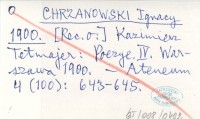 0 CHRZANOWSKI Ignacy
1900. [Rec. o:] Kazimierz
Tetmajer: Poezye. IV. War-
szawa 1900. – Ateneum
4 (100): 643-645.